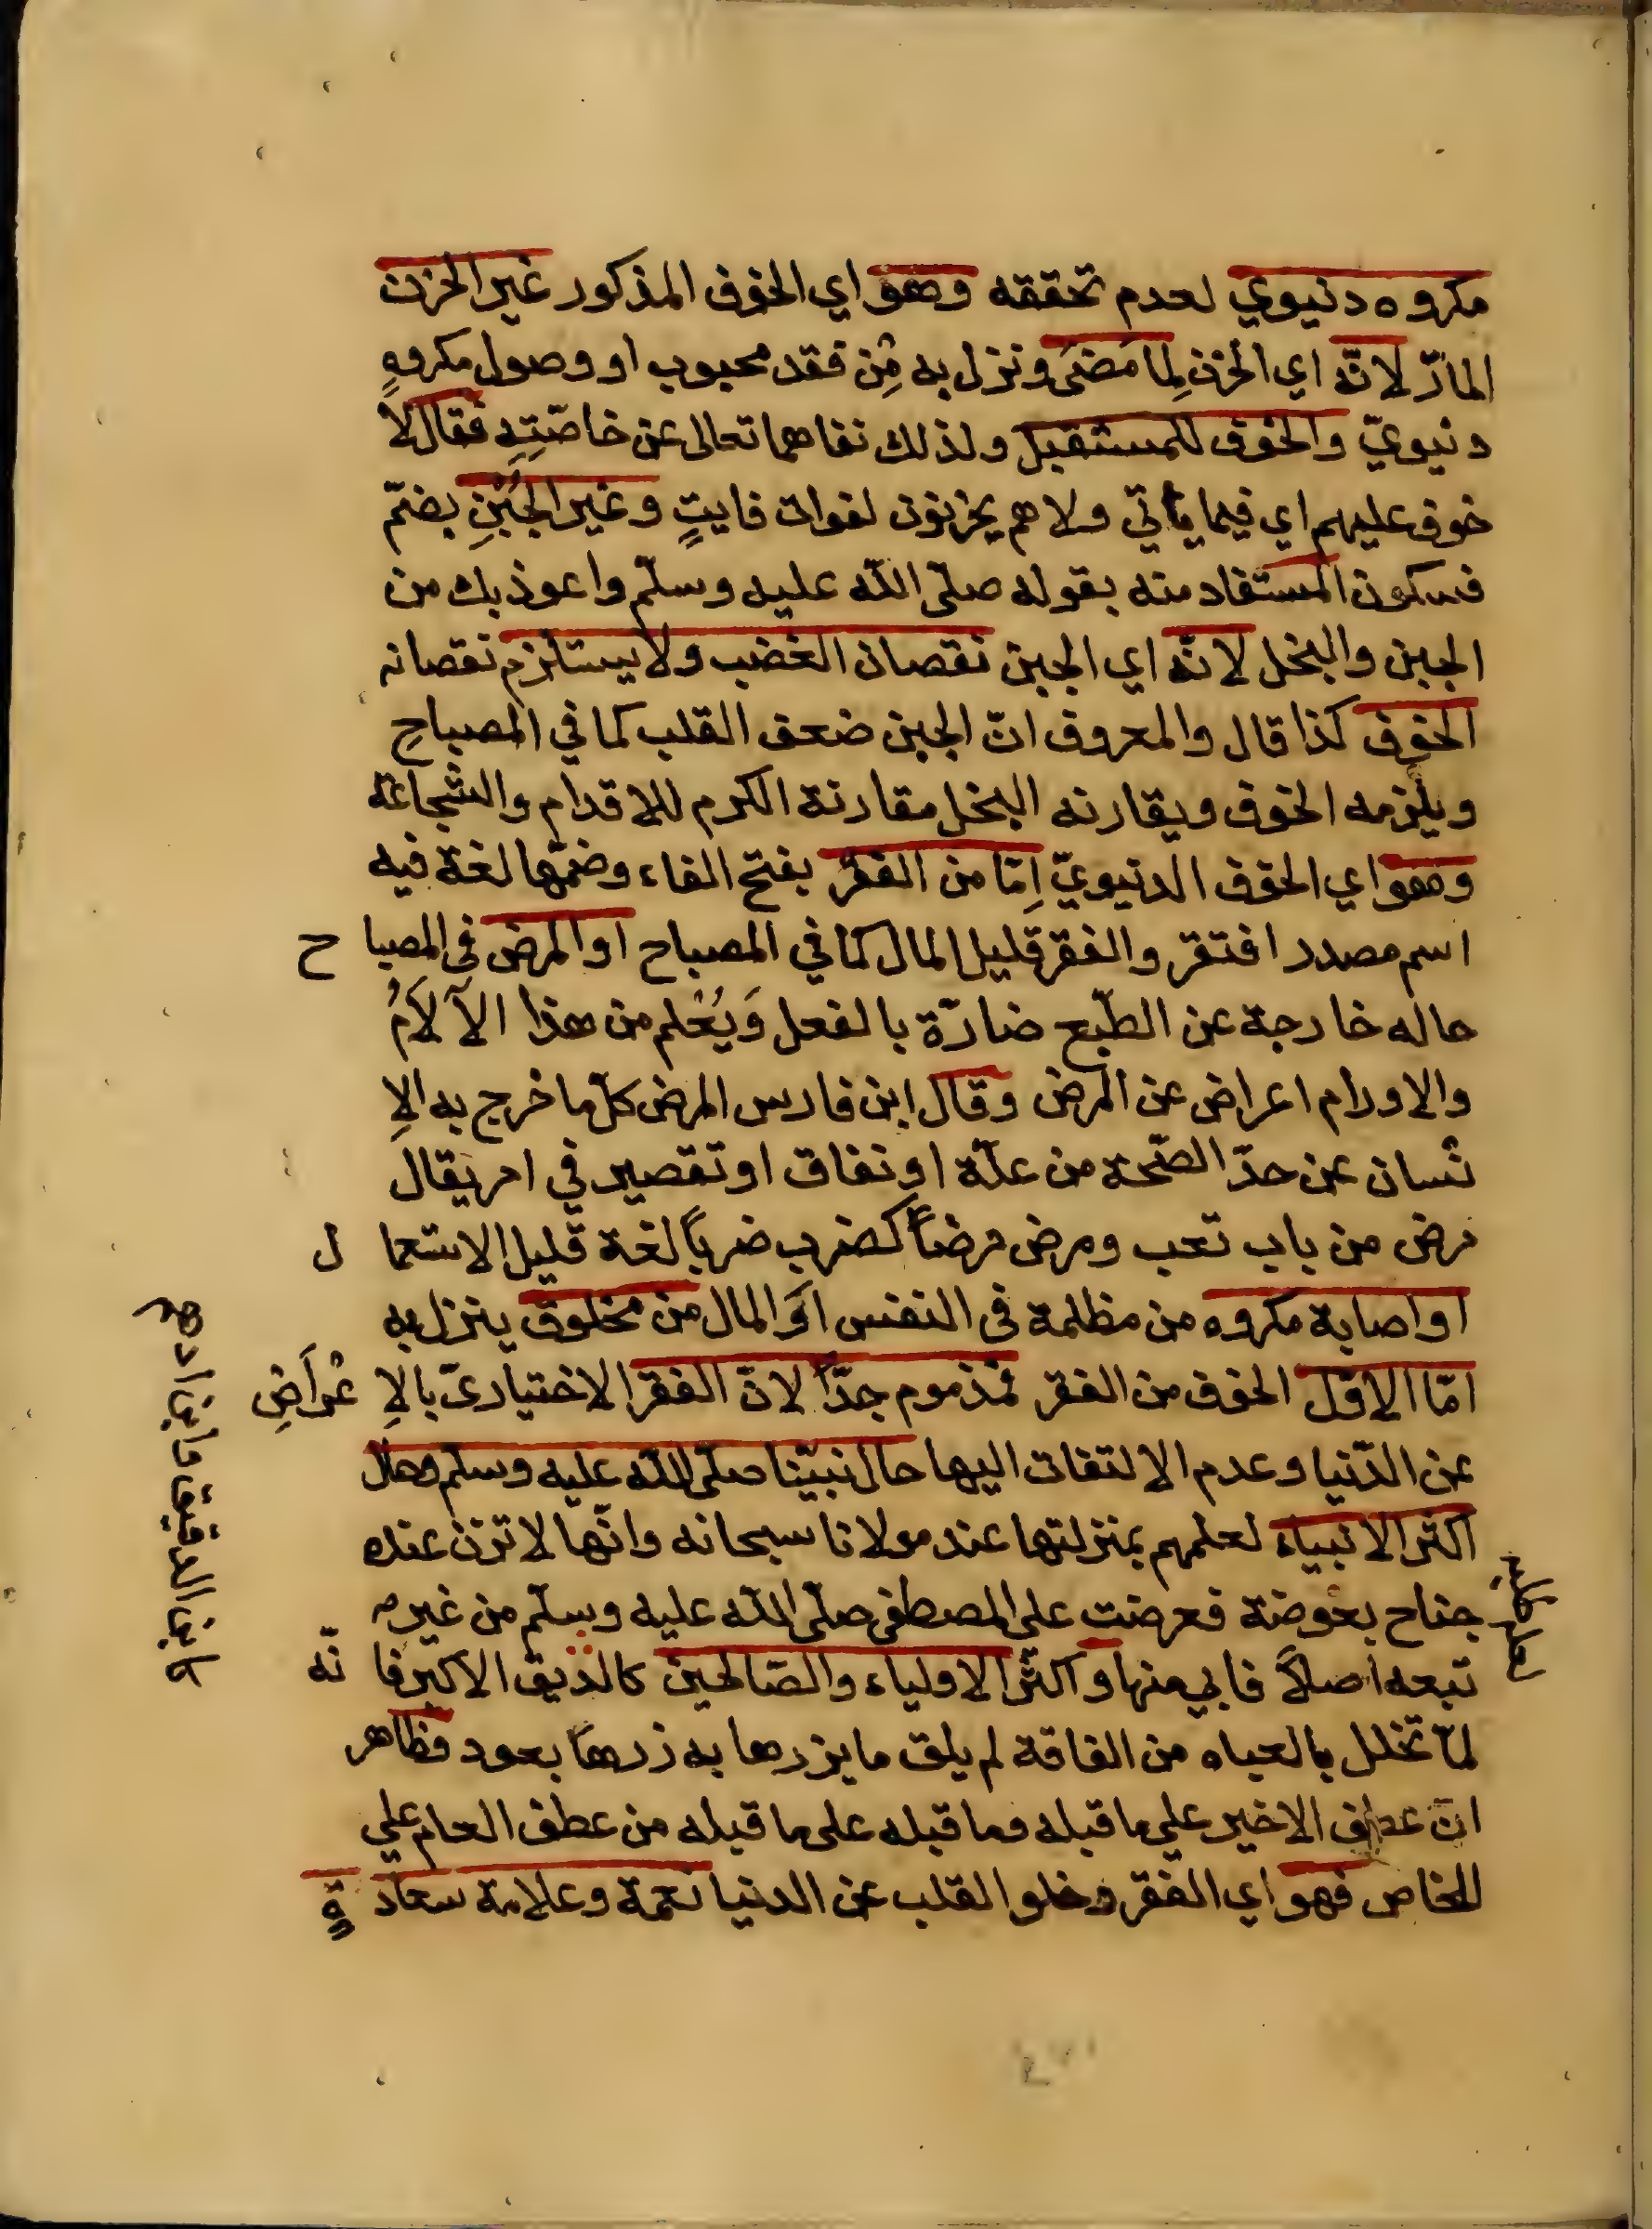 مكروه دنيوي لعدم تحققه وهو اي الخوف المذكور غير الحزن
المارّ لانّه اي الحزن لِما مَضىَ ونزل به مِن فقد محبوب او وصول مكروهٍ
دنيويّ والخوف للمستقبل ولذلك نفاهما تعالى عن خاصّتِهِ فقال لا
خوف عليهم اي فيما ياتي ولا هم يحزنون لفوات فايتٍ وغير الجُبْنِ بضمّ
فسكون المستفاد منه بقوله صلّى الله عليه وسلّم واعوذ بك من
الجبن والبخل لانّه اي الجبن نقصان الغضب ولا يستلزم نقصانه
الخوف كذا قال والمعروف انّ الجبن ضعف القلب كما في المصباحِ
ويلزمه الخوف ويقارنه البخل مقارنة الكرم للاقدام والشجاعة
وهو اي الخوف الدنيويّ اِمّا من الفقر بفتح الفاء وضمّها لغة فيه
اسم مصدر افتقر والفقر قليل المال كما في المصباح او المرض فى المصباح
حاله خارجة عن الطّبع ضارّة بالفعل وَيُعْلم من هذا الآلاَمُ
والاورام اعراض عن المرض وقال ابن فارس المرض كلّ ما خرج به الاِ
نسان عن حدّ الصّحة من علّة او نفاق او تقصير في امر يقال
مرض من باب تعب ومرض مرضاً كضرب ضرباً لغة قليل الاستعمال
او اصابة مكروه من مظلمة فى النفس اَو المال من مخلوق ينزل به
امّا الاوّل الخوف من الفقر فمذموم جدّاً لانّ الفقر الاختيارىّ بالاِعْراَضِ
عن الدّنيا وعدم الالتفات اليها حال نبيّنا صلّى الله عليه وسلّم وحال
اكثر الانبياء لعلمهم بمنزلتها عند مولانا سبحانه وانّها لا تزن عنده
جناح بعوضة فعرضت على المصطفى صلّى الله عليه وسلّم من غير
تبعه اصلاً فابي منها واكثر الاولياء والصّالحين كالصّديق الاكبر فانّه
لمّا تخلل بالعباه من الفاقة لم يلق ما يزرها به زرها بعود فظاهر
انّ عطف الاخير علي ما قبله وما قبله على ما قبله من عطف العام علي
الخاص فهو اي الفقر وخلو القلب عن الدنيا نعمة وعلامة سعادةٍ